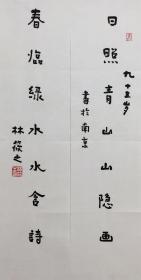 九十五岁
日照青山山隐画
书于南京
春临绿水水含诗
林筱之